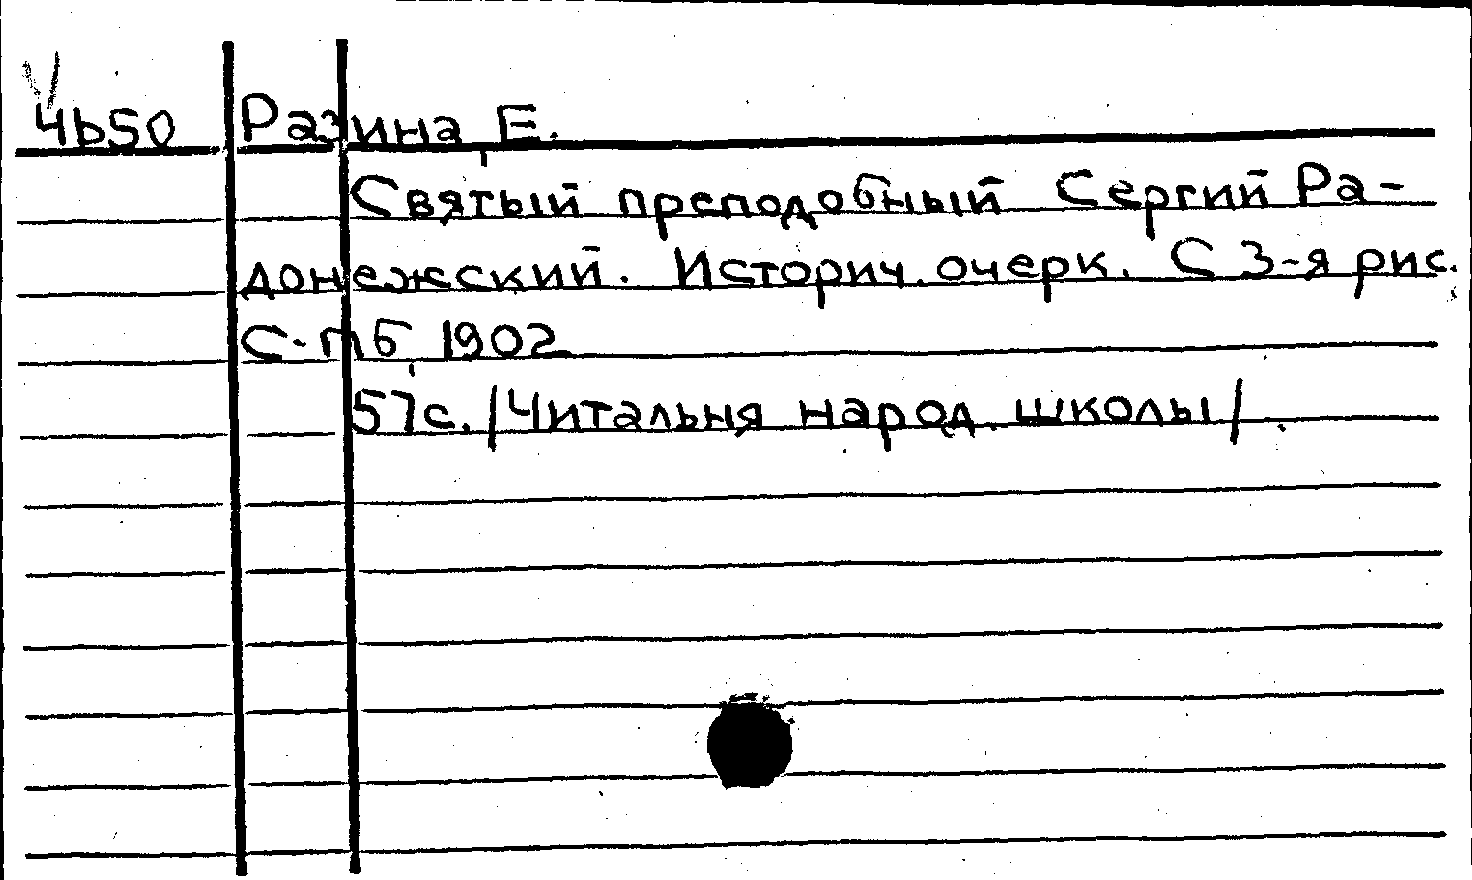 4b50 Разина, Е.
Святый преподобный Сергий Ра-
донежский. Историч. очерк. С 3-я рис.
С-Пб, 1902
57с. /Читальня народ. школы/.